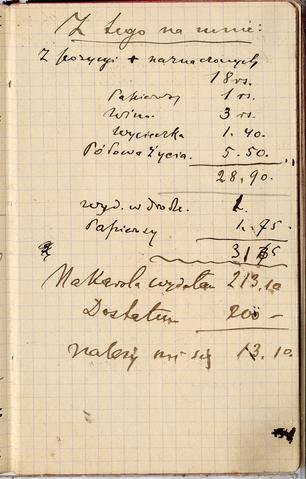 Z tego na mnie:
Z pozycyi + naznaczonych
18 rs.
Papierosy 1 rs.
Wino 3 rs.
Wycieczka 1.40.
Połowa życia. 5.50.
28,90.
wyd. w drodze. 1.
Papierosy 1.75
3165
Na Karola wydałem 213.10
Dostałem 200 –
należy mi się 13.10.